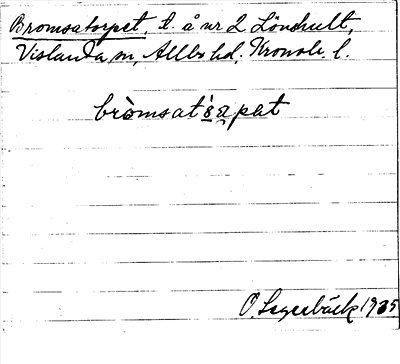 Bromsatorpet, t. å nr 2 Lönshult,
Vislanda sn, Allbo hd, Kronob. l.
bròmsatàrpat
O. Segerbäck 1935